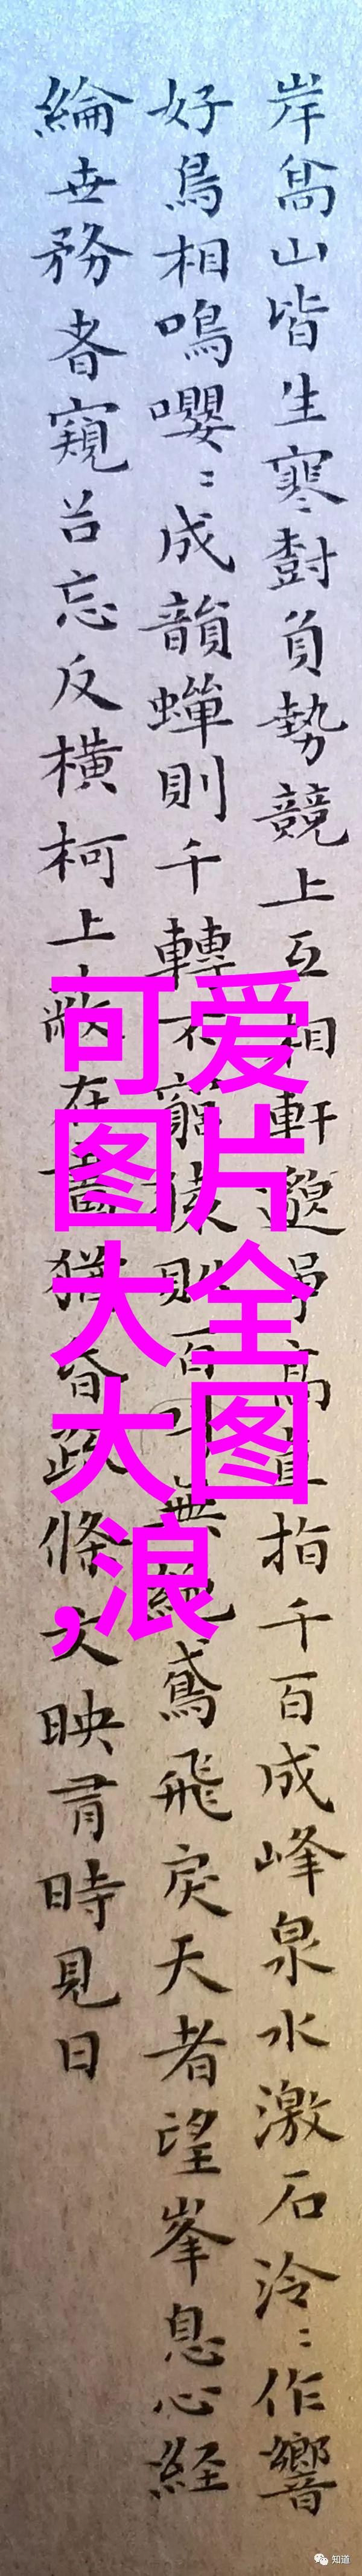 岸高山皆生寒樹負勢競上互相軒邈爭高直指千百成峰泉水激石泠〻作響
好鳥相鳴嚶〻成韻蟬則千轉不窮猿則百叫無絕鳶飛戾天者望峯息心経
綸世務者窺谷忘反橫柯上蔽在晝猶昏疏條交映有時見日
可爱
图片
大全
大图
,浪
知道